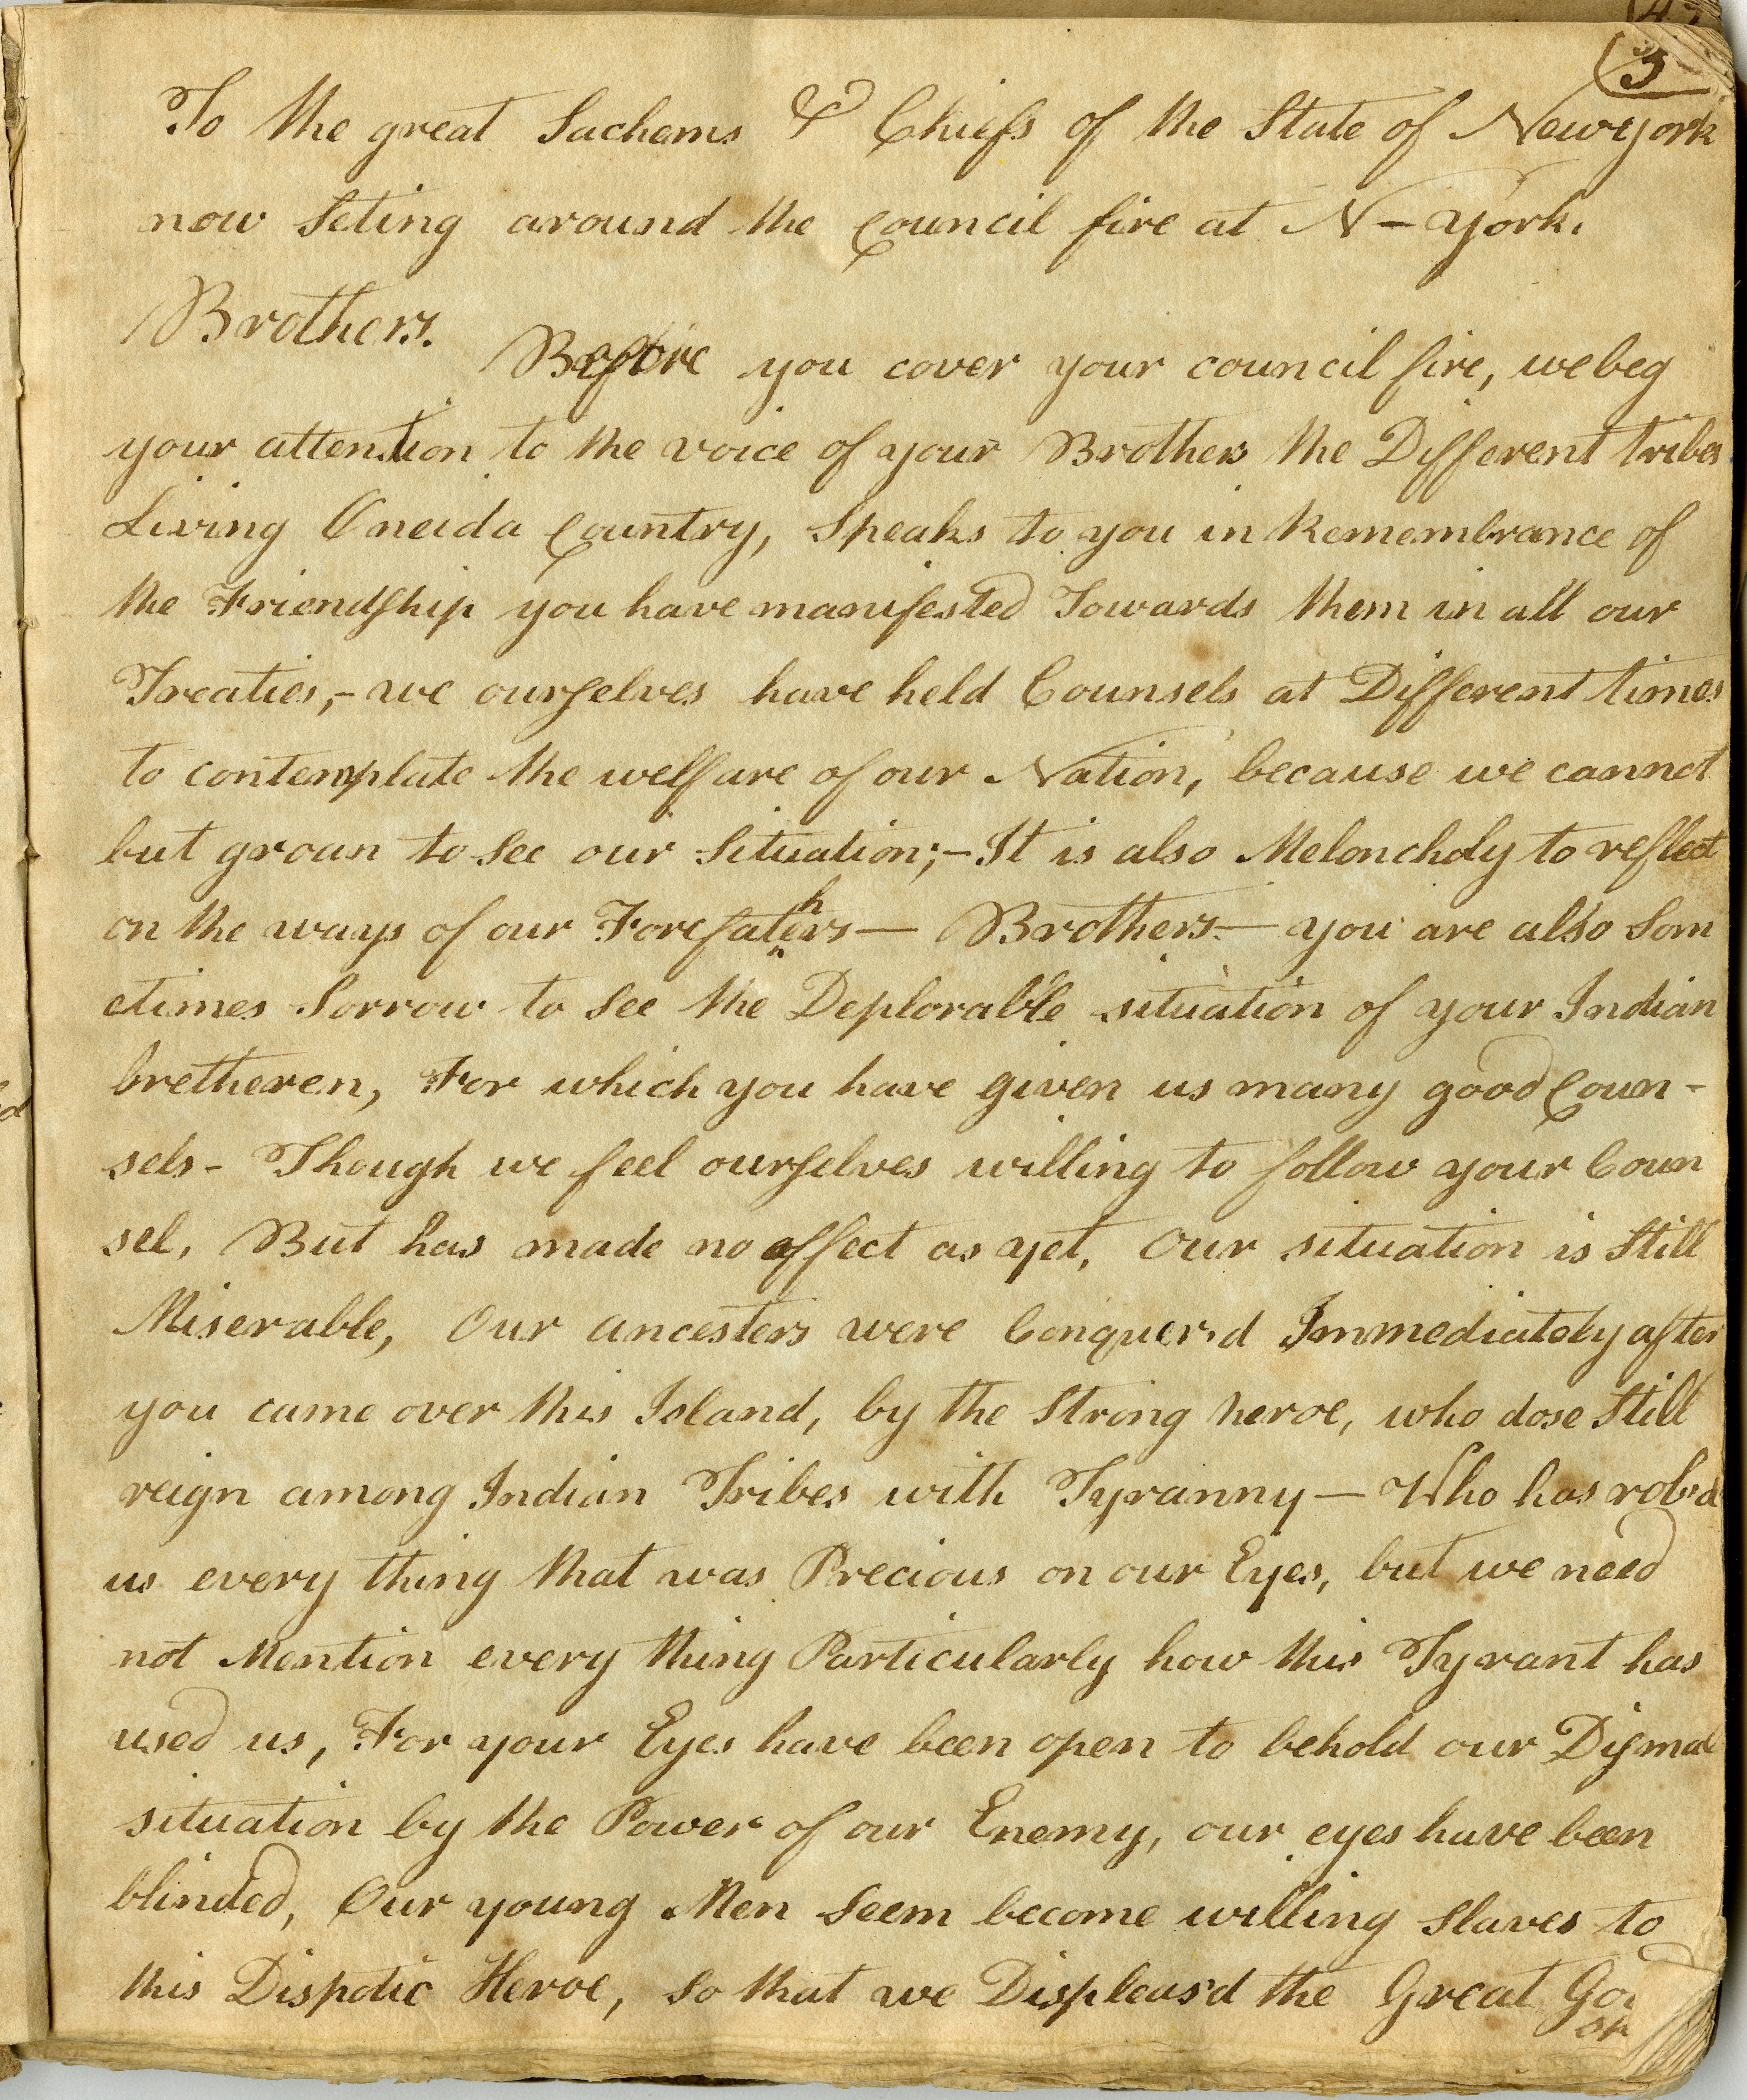 (5
To the great Sachems & Chiefs of the State of Newyork
now Seting around the Council fire at N-York.
Brothers.
Before you cover your council fire, we beg
your attention to the voice of your Brothers the Different tribes
Living Oneida Country, Speaks to you in Remembrance of
the Friendship you have manifested Towards them in all our
Treaties,- we ourselves have held Counsels at Different times
to contemplate the welfare of our Nation, because we cannot
but groan to See our Situation;- It is also Meloncholy to reflect
on the ways of our Forefathers— Brothers— you are also Som
etimes Sorrow to See the Deplorable situation of your Indian
bretheren, For which you have given us many good Coun-
sels- Though we feel ourselves willing to follow your Coun
sel, But has made no effect as yet, Our situation is Still
Miserable, Our ancesters were Conquer'd Immediately after
you came over this Island, by the Strong heroe, who dose Still
reign among Indian Tribes with Tyranny— Who has rob'd
us every thing that was Precious on our Eyes, but we need
not Mention every thing Particularly how this Tyrant has
used us, For your Eyes have been open to behold our Dismal
situation by the Power of our Enemy, our eyes have been
blinded, Our young Men Seem become willing Slaves to
this Dispotic Heroe, So that we Displeas'd the Great